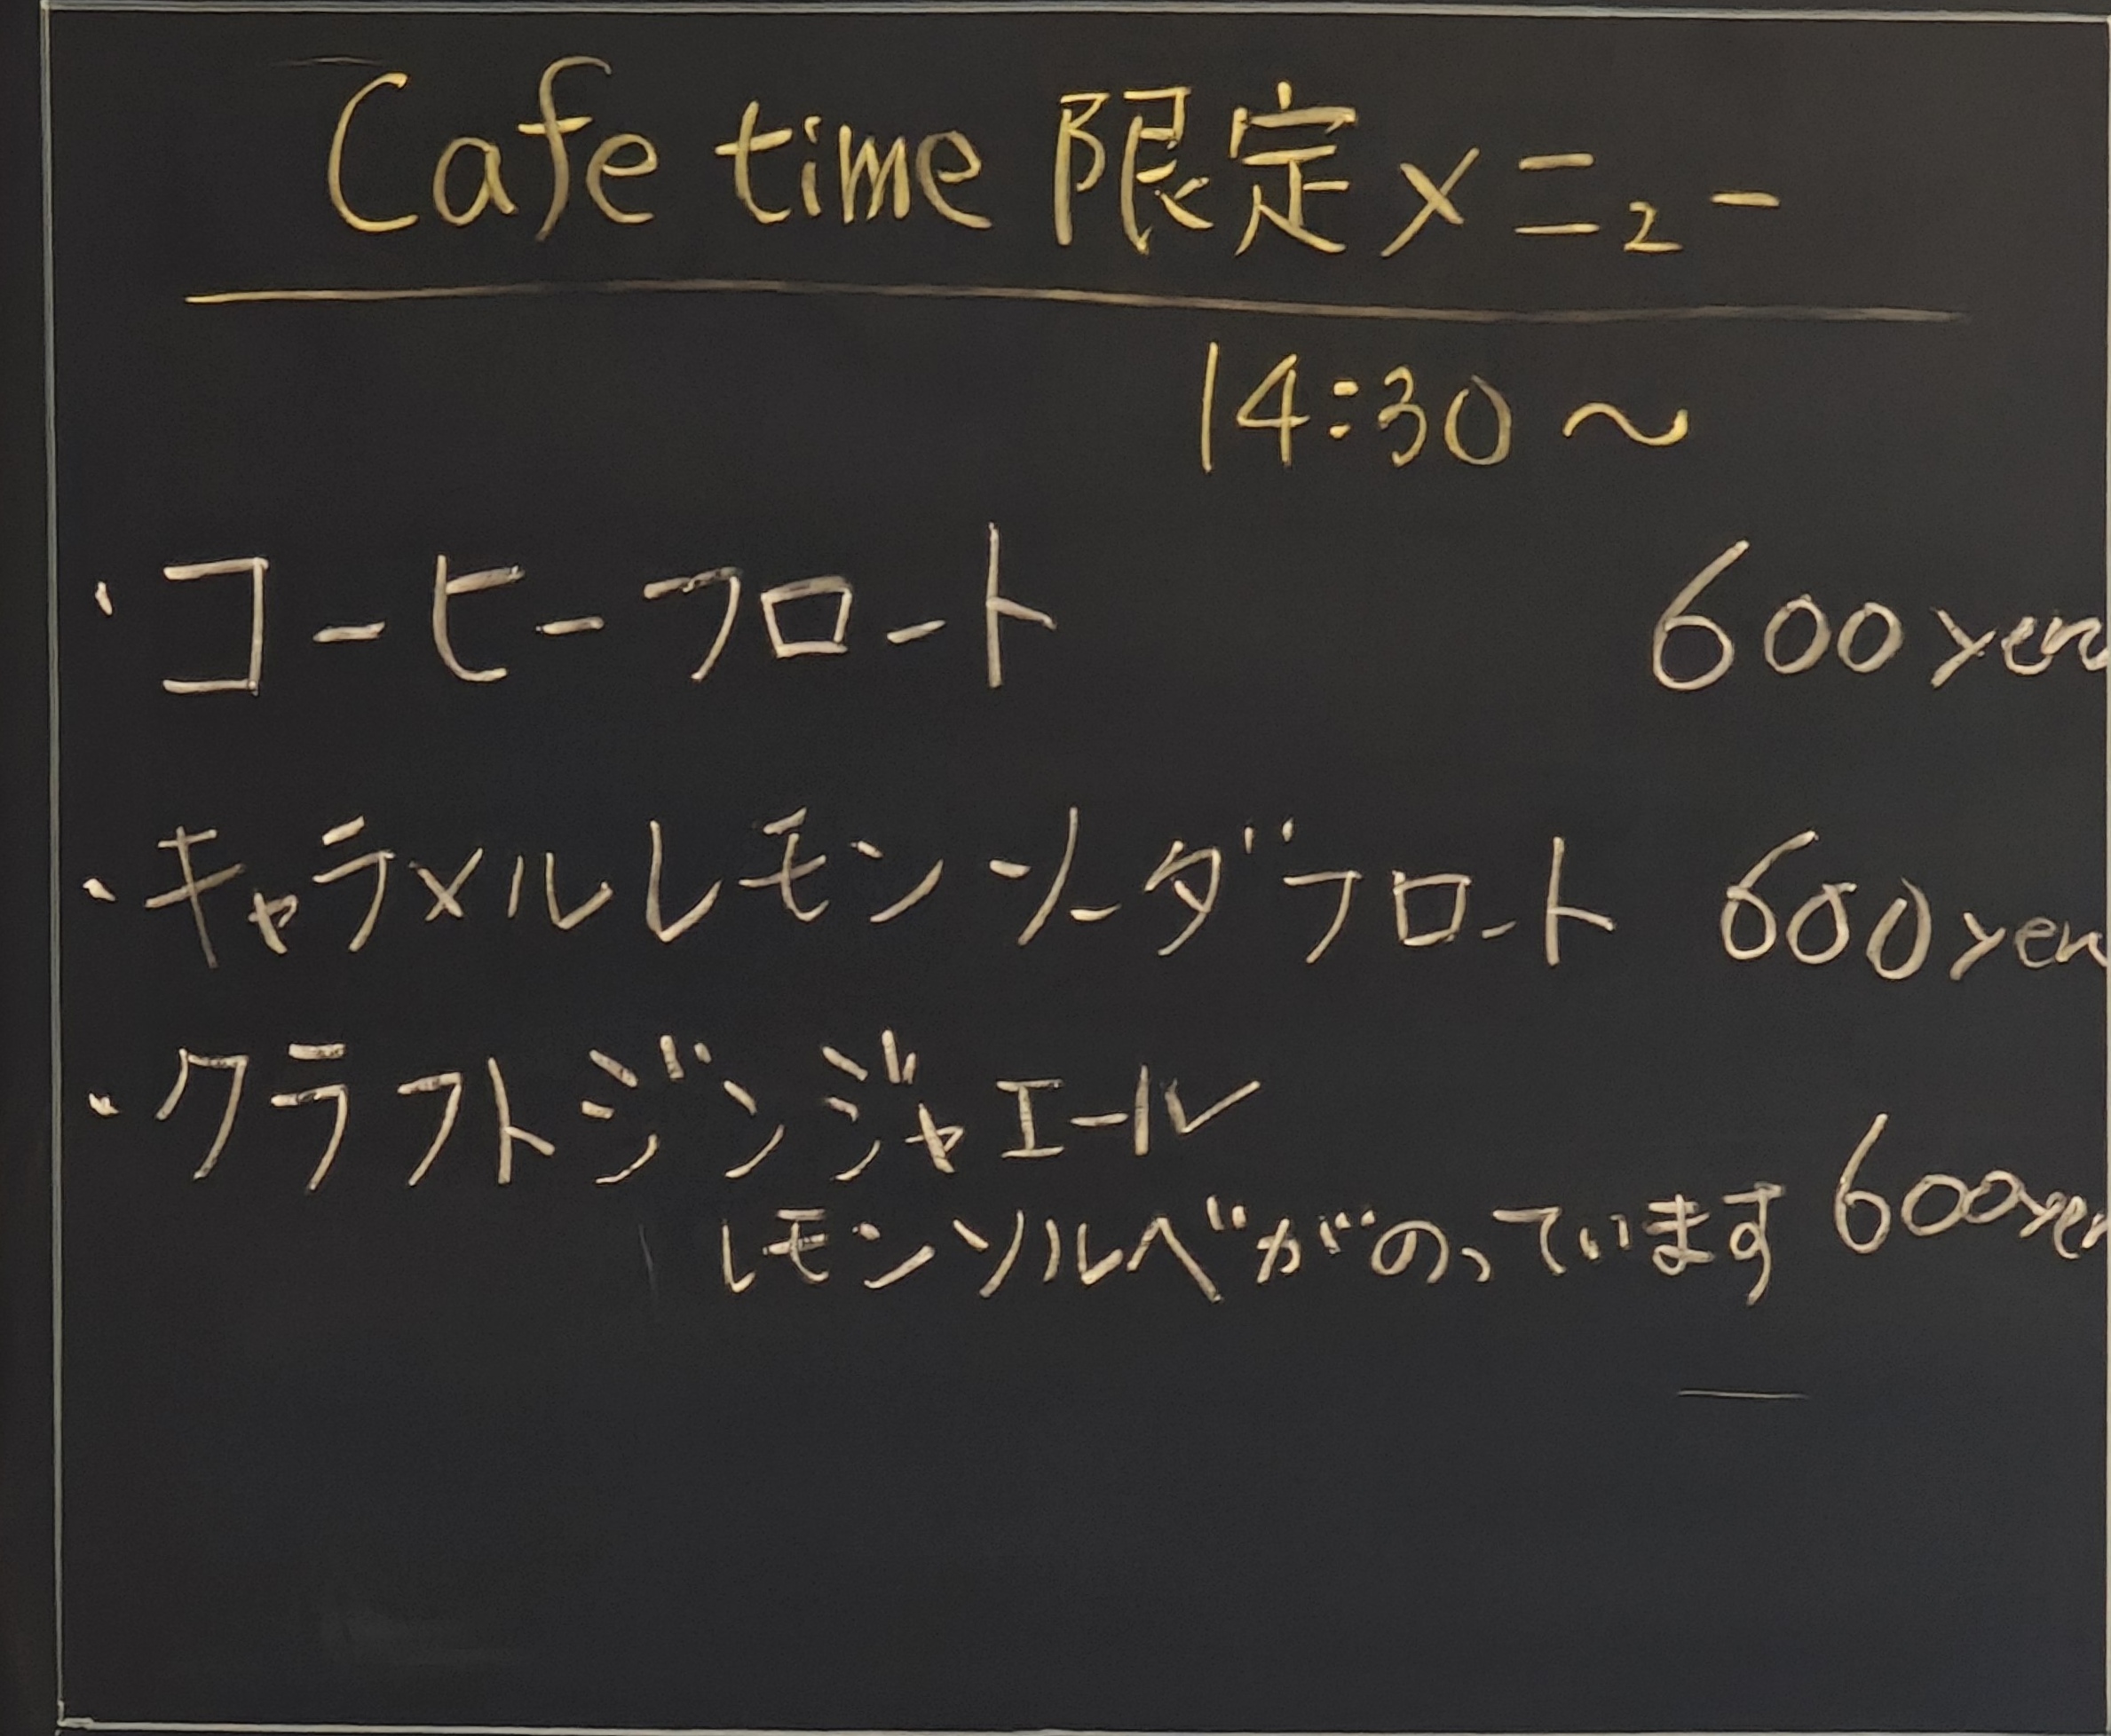 Cafe time 限定メニュー
14:30～
・コーヒーフロート 600yen
・キャラメルレモンソーダフロート 600yen
・クラフトジンジャエール
レモンソルベがのっています 600yen